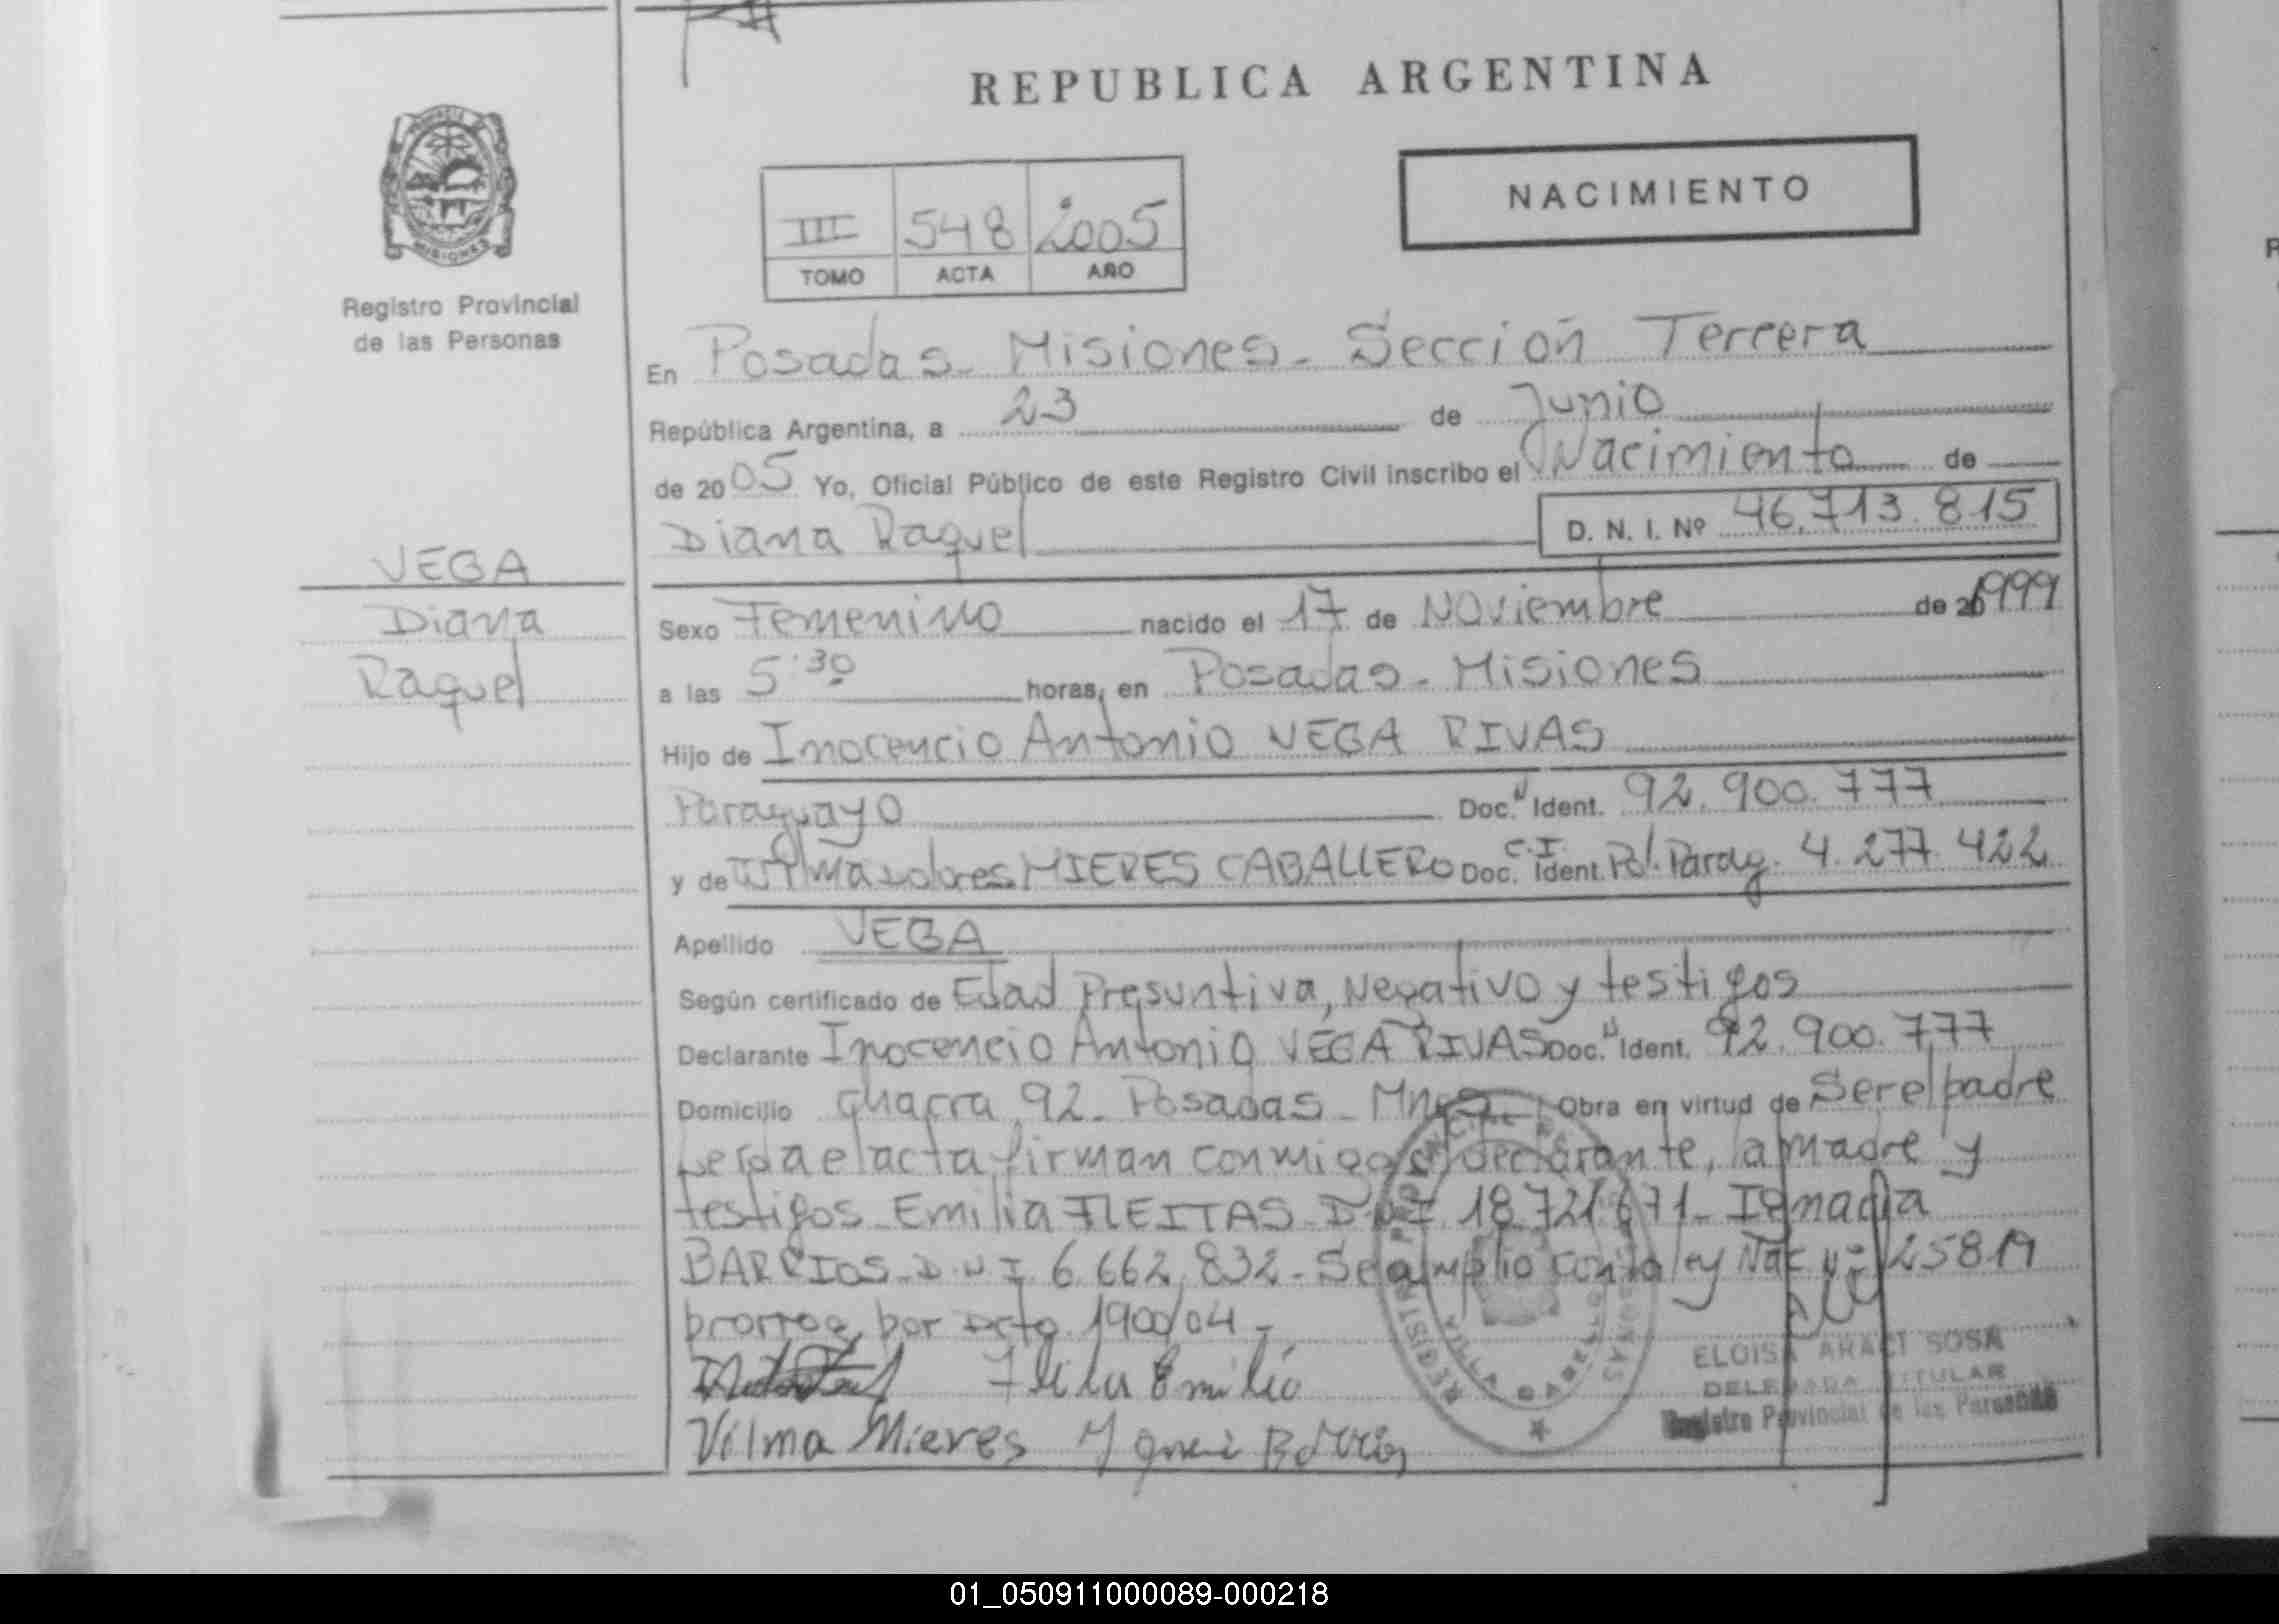 REPUBLICA ARGENTINA
PROVINCIA DE
MISIONES
Registro Provincial
de las Personas
NACIMIENTO
III 548 2005
TOMO ACTA AÑO
En Posadas - Misiones - Sección Tercera
República Argentina, a 23 de Junio
de 2005 Yo, Oficial Público de este Registro Civil inscribo el Nacimiento de
Diana Raquel D. N. I. Nº 46.713.815
VEGA
Diana
Raquel
Sexo Femenino nacido el 17 de Noviembre de 1999
a las 5:30 horas, en Posadas - Misiones
Hijo de Inocencio Antonio VEGA RIVAS
Paraguayo Doc. N Ident. 92.900.777
y de Wilma Dolores MIERES CABALLERO Doc. C.I. Ident. Pol. Parag. 4.277.422
Apellido VEGA
Según certificado de Edad Presuntiva, Negativo y testigos
Declarante Inocencio Antonio VEGA RIVAS Doc. N Ident. 92.900.777
Domicilio chacra 92 - Posadas - Mnes - Obra en virtud de Ser el padre
acta firman conmigo el declarante, la madre y
testigos Emilia FLEITAS D.N.I 18.721.671 - Ignacia
BARRIOS - D.N.I. 6.662.832 - Se amplio con la ley Nac Nº 25819
prorrog. por Dcto 1900/04 -
Emilia
Vilma Mieres
REGISTRO PROVINCIAL DE LAS PERSONAS
VILLA
ELOISA ARACI SOSA
DELEGADA TITULAR
Registro Provincial de las Personas
01_050911000089-000218